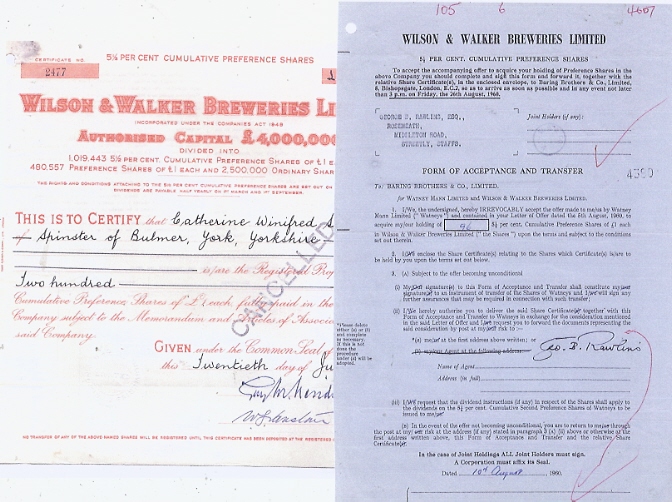 CERTIFICATE NO.
2477
5½ PER CENT CUMULATIVE PREFERENCE SHARES
£
WILSON & WALKER BREWERIES LI
INCORPORATED UNDER THE COMPANIES ACT 1948
AUTHORISED CAPITAL £4,000,000
DIVIDED INTO
1,019,443 5½ PER CENT. CUMULATIVE PREFERENCE SHARES OF £1
480,557 PREFERENCE SHARES OF £1 EACH AND 2,500,000 ORDINARY SHAR
THE RIGHTS AND CONDITIONS ATTACHING TO THE 5½ PER CENT CUMULATIVE PREFERENCE SHARES ARE SET OUT ON
DIVIDENDS ARE PAYABLE HALF YEARLY ON 1ST MARCH AND 1ST SEPTEMBER.
THIS IS TO CERTIFY that Catherine Winifred S
Spinster of Bulmer, York, Yorkshire
is/are the Registered Prop
Two hundred
Cumulative Preference Shares of £1 each, fully paid in the
Company subject to the Memorandum and Articles of Associa
said Company.
CANCELLED
GIVEN under the Common Seal of
this Twentieth day of Ju
NO TRANSFER OF ANY OF THE ABOVE NAMED SHARES WILL BE REGISTERED UNTIL THIS CERTIFICATE HAS BEEN DEPOSITED AT THE REGISTERED
105 6 4607
WILSON & WALKER BREWERIES LIMITED
5½ PER CENT. CUMULATIVE PREFERENCE SHARES
To accept the accompanying offer to acquire your holding of Preference Shares in the
above Company you should complete and sign this form and forward it, together with the
relative Share Certificate(s), in the enclosed envelope, to Baring Brothers & Co., Limited,
8, Bishopsgate, London, E.C.2, so as to arrive as soon as possible and in any event not later
than 3 p.m. on Friday, the 26th August, 1960.
GEORGE D. RAWLINS, ESQ.,
ROSENEATH,
MIDDLETON ROAD,
STREETLY, STAFFS.
Joint Holders (if any):
FORM OF ACCEPTANCE AND TRANSFER
To: BARING BROTHERS & CO., LIMITED.
For WATNEY MANN LIMITED and WILSON AND WALKER BREWERIES LIMITED.
1. I/We, the undersigned, hereby IRREVOCABLY accept the offer made to me/us by Watney
Mann Limited ("Watneys") and contained in your Letter of Offer dated the 5th August, 1960, to
acquire my/our holding of 96 5½ per cent. Cumulative Preference Shares of £1 each
in Wilson & Walker Breweries Limited ("the Shares") upon the terms and subject to the conditions
set out therein.
2. I/We enclose the Share Certificate(s) relating to the Shares which Certificate(s) is/are to
be held by you upon the terms set out below.
3. (A) Subject to the offer becoming unconditional
(i) My/Our signature(s) to this Form of Acceptance and Transfer shall constitute my/our
signature(s) to an instrument of transfer of the Shares to Watneys and I/We will sign any
further assurances that may be required in connection with such transfer;
(ii) I/We hereby authorise you to deliver the said Share Certificate(s) together with this
Form of Acceptance and Transfer to Watneys in exchange for the consideration mentioned
in the said Letter of Offer and I/we request you to forward the documents representing the
said consideration by post at my/our risk to :—
*(a) me/us at the first address above written;
or
(b) my/our Agent at the following address:
Geo. D. Rawlins
*Please delete either (a) or (b) and complete as necessary. If this is not done the procedure under (a) will be adopted.
Name of Agent
Address (in full)
(iii) I/We request that the dividend instructions (if any) in respect of the Shares shall apply to
the dividends on the 5½ per cent. Cumulative Second Preference Shares of Watneys to be
issued to me/us
(B) In the event of the offer not becoming unconditional, you are to return to me/us through
the post at my/our risk at the address (if any) stated in paragraph 3 (A) (ii) above or otherwise at the
first address written above, this Form of Acceptance and Transfer and the relative Share
Certificate(s).
In the case of Joint Holdings ALL Joint Holders must sign.
A Corporation must affix its Seal.
Dated 10th August 1960.